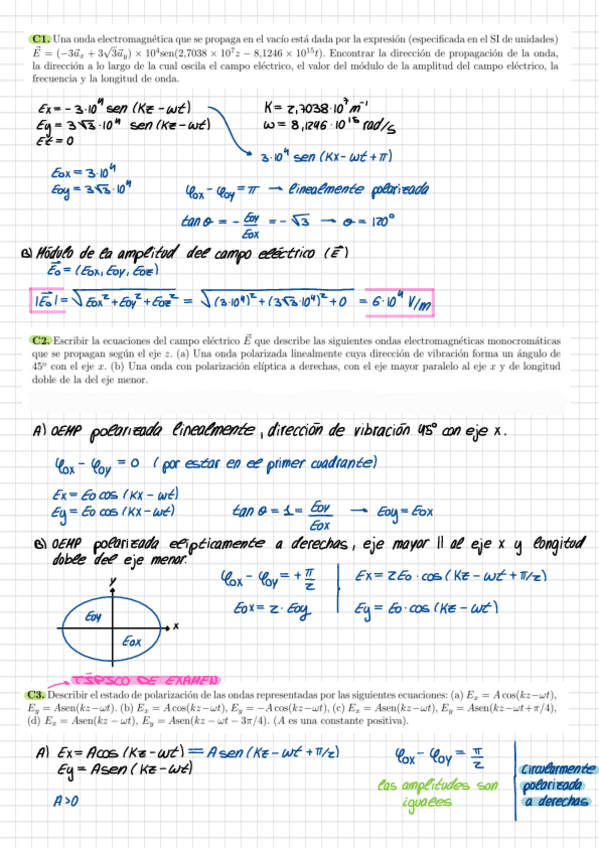 C1. Una onda electromagnética que se propaga en el vacío está dada por la expresión (especificada en el SI de unidades)
E⃗ = (−3u⃗ₓ + 3√3u⃗ᵧ) × 10⁴sen(2,7038 × 10⁷z − 8,1246 × 10¹⁵t). Encontrar la dirección de propagación de la onda,
la dirección a lo largo de la cual oscila el campo eléctrico, el valor del módulo de la amplitud del campo eléctrico, la
frecuencia y la longitud de onda.
Ex = -3·10⁴ sen (Kz - ωt)
K = 2,7038·10⁷ m⁻¹
Ey = 3√3·10⁴ sen (Kz - ωt)
ω = 8,1246·10¹⁵ rad/s
Ez = 0
3·10⁴ sen (Kx - ωt + π)
Eox = 3·10⁴
Eoy = 3√3·10⁴
φox - φoy = π → linealmente polarizada
tan θ = - Eoy/Eox = -√3 → θ = 120°
B) Módulo de la amplitud del campo eléctrico (E⃗)
E⃗o = (Eox, Eoy, Eoz)
|E⃗o| = √(Eox² + Eoy² + Eoz²) = √((3·10⁴)² + (3√3·10⁴)² + 0) = 6·10⁴ V/m
C2. Escribir la ecuaciones del campo eléctrico E⃗ que describe las siguientes ondas electromagnéticas monocromáticas
que se propagan según el eje z. (a) Una onda polarizada linealmente cuya dirección de vibración forma un ángulo de
45º con el eje x. (b) Una onda con polarización elíptica a derechas, con el eje mayor paralelo al eje x y de longitud
doble de la del eje menor.
A) OEMP polarizada linealmente, dirección de vibración 45° con eje x.
φox - φoy = 0 (por estar en el primer cuadrante)
Ex = Eo cos (Kx - ωt)
Ey = Eo cos (Kx - ωt)
tan θ = 1 = Eoy/Eox → Eoy = Eox
B) OEMP polarizada elípticamente a derechas, eje mayor || al eje x y longitud
doble del eje menor.
φox - φoy = + π/2
Ex = 2Eo · cos (Kz - ωt + π/2)
Eox = 2 · Eoy
Ey = Eo · cos (Kz - ωt)
y
Eoy
x
Eox
TÍPICO DE EXAMEN
C3. Describir el estado de polarización de las ondas representadas por las siguientes ecuaciones: (a) Eₓ = A cos(kz−ωt),
Eᵧ = Asen(kz−ωt). (b) Eₓ = A cos(kz−ωt), Eᵧ = −A cos(kz−ωt), (c) Eₓ = Asen(kz−ωt), Eᵧ = Asen(kz−ωt+π/4),
(d) Eₓ = Asen(kz − ωt), Eᵧ = Asen(kz − ωt − 3π/4). (A es una constante positiva).
A) Ex = Acos (Kz - ωt) = A sen (Kz - ωt + π/2)
Ey = A sen (Kz - ωt)
A>0
φox - φoy = π/2
las amplitudes son
iguales
circularmente
polarizada
a derechas